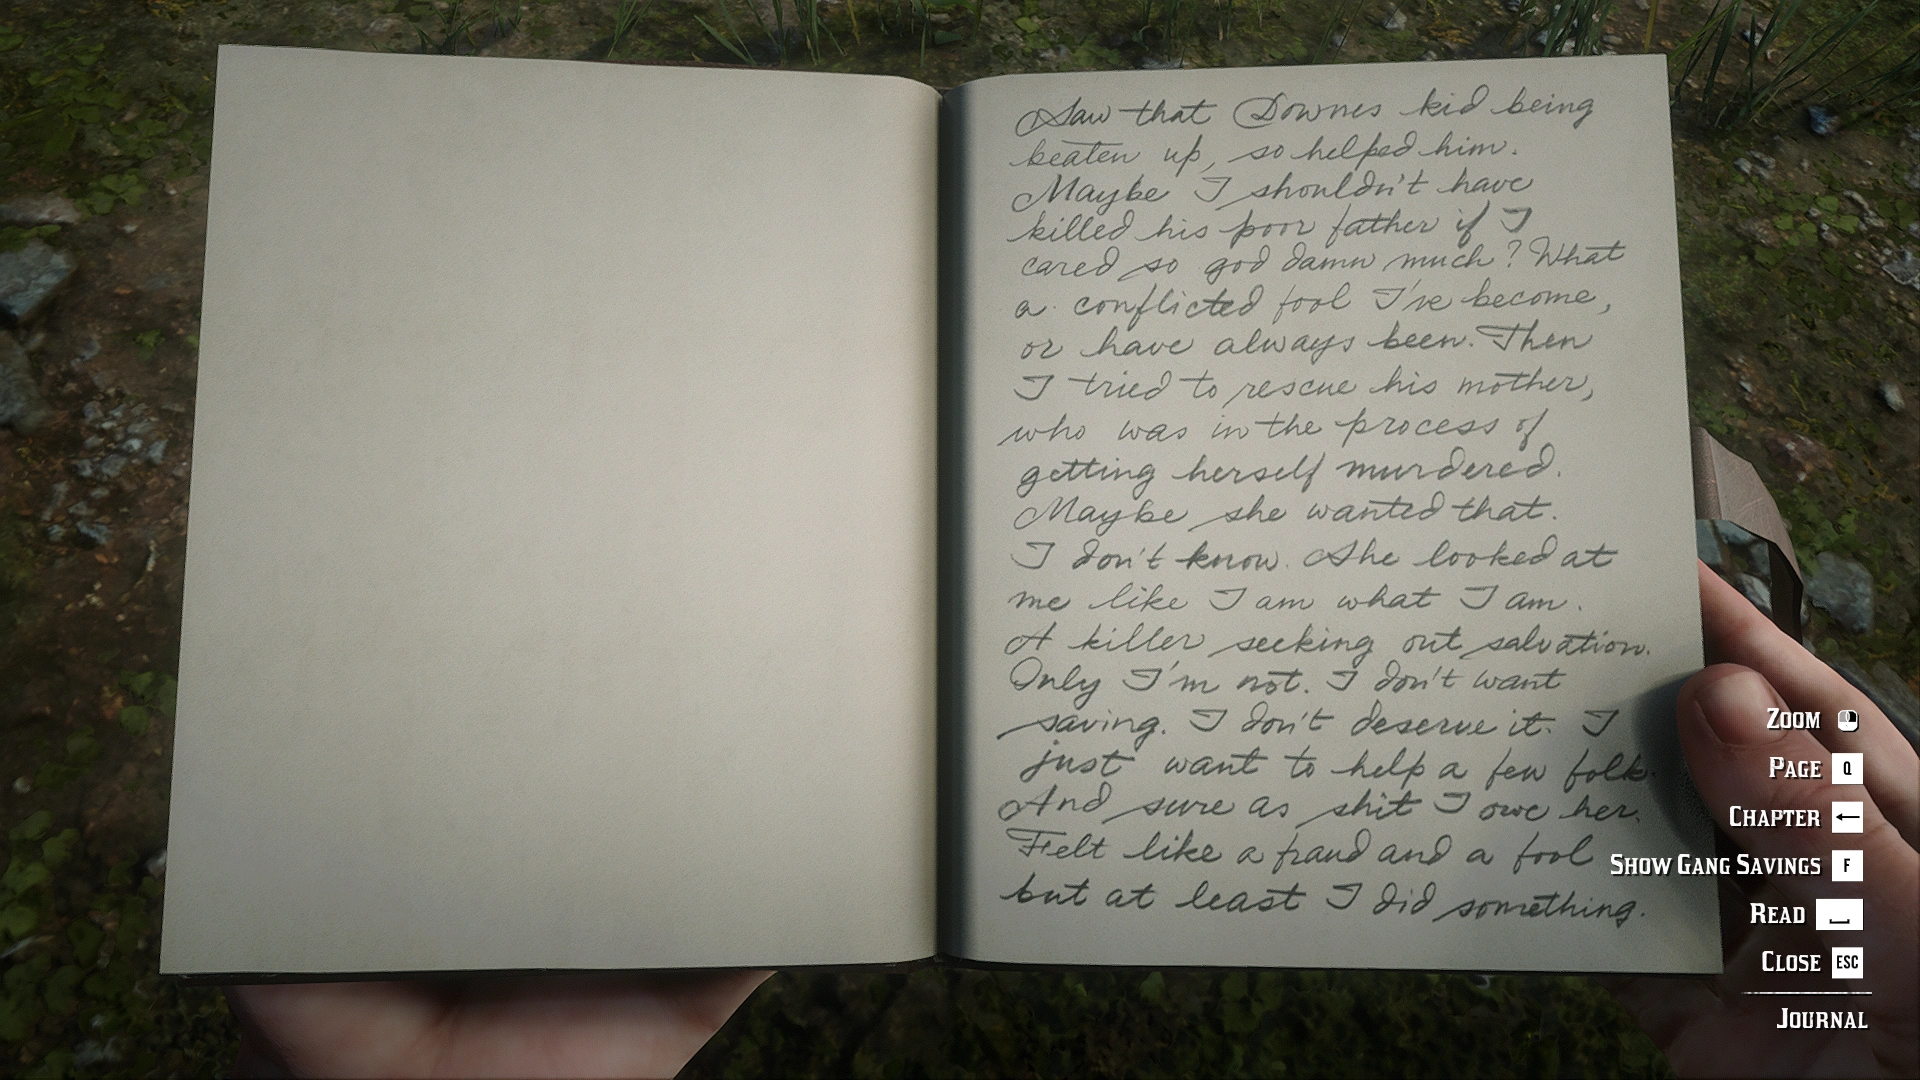 Saw that Downes kid being
beaten up, so helped him.
Maybe I shouldn't have
killed his poor father if I
cared so god damn much? What
a conflicted fool I've become,
or have always been. Then
I tried to rescue his mother,
who was in the process of
getting herself murdered.
Maybe she wanted that.
I don't know. She looked at
me like I am what I am.
A killer seeking out salvation.
Only I'm not. I don't want
saving. I don't deserve it. I
just want to help a few folk.
And sure as shit I owe her.
Felt like a fraud and a fool
but at least I did something.
ZOOM
PAGE Q
CHAPTER ←
SHOW GANG SAVINGS F
READ
CLOSE ESC
JOURNAL